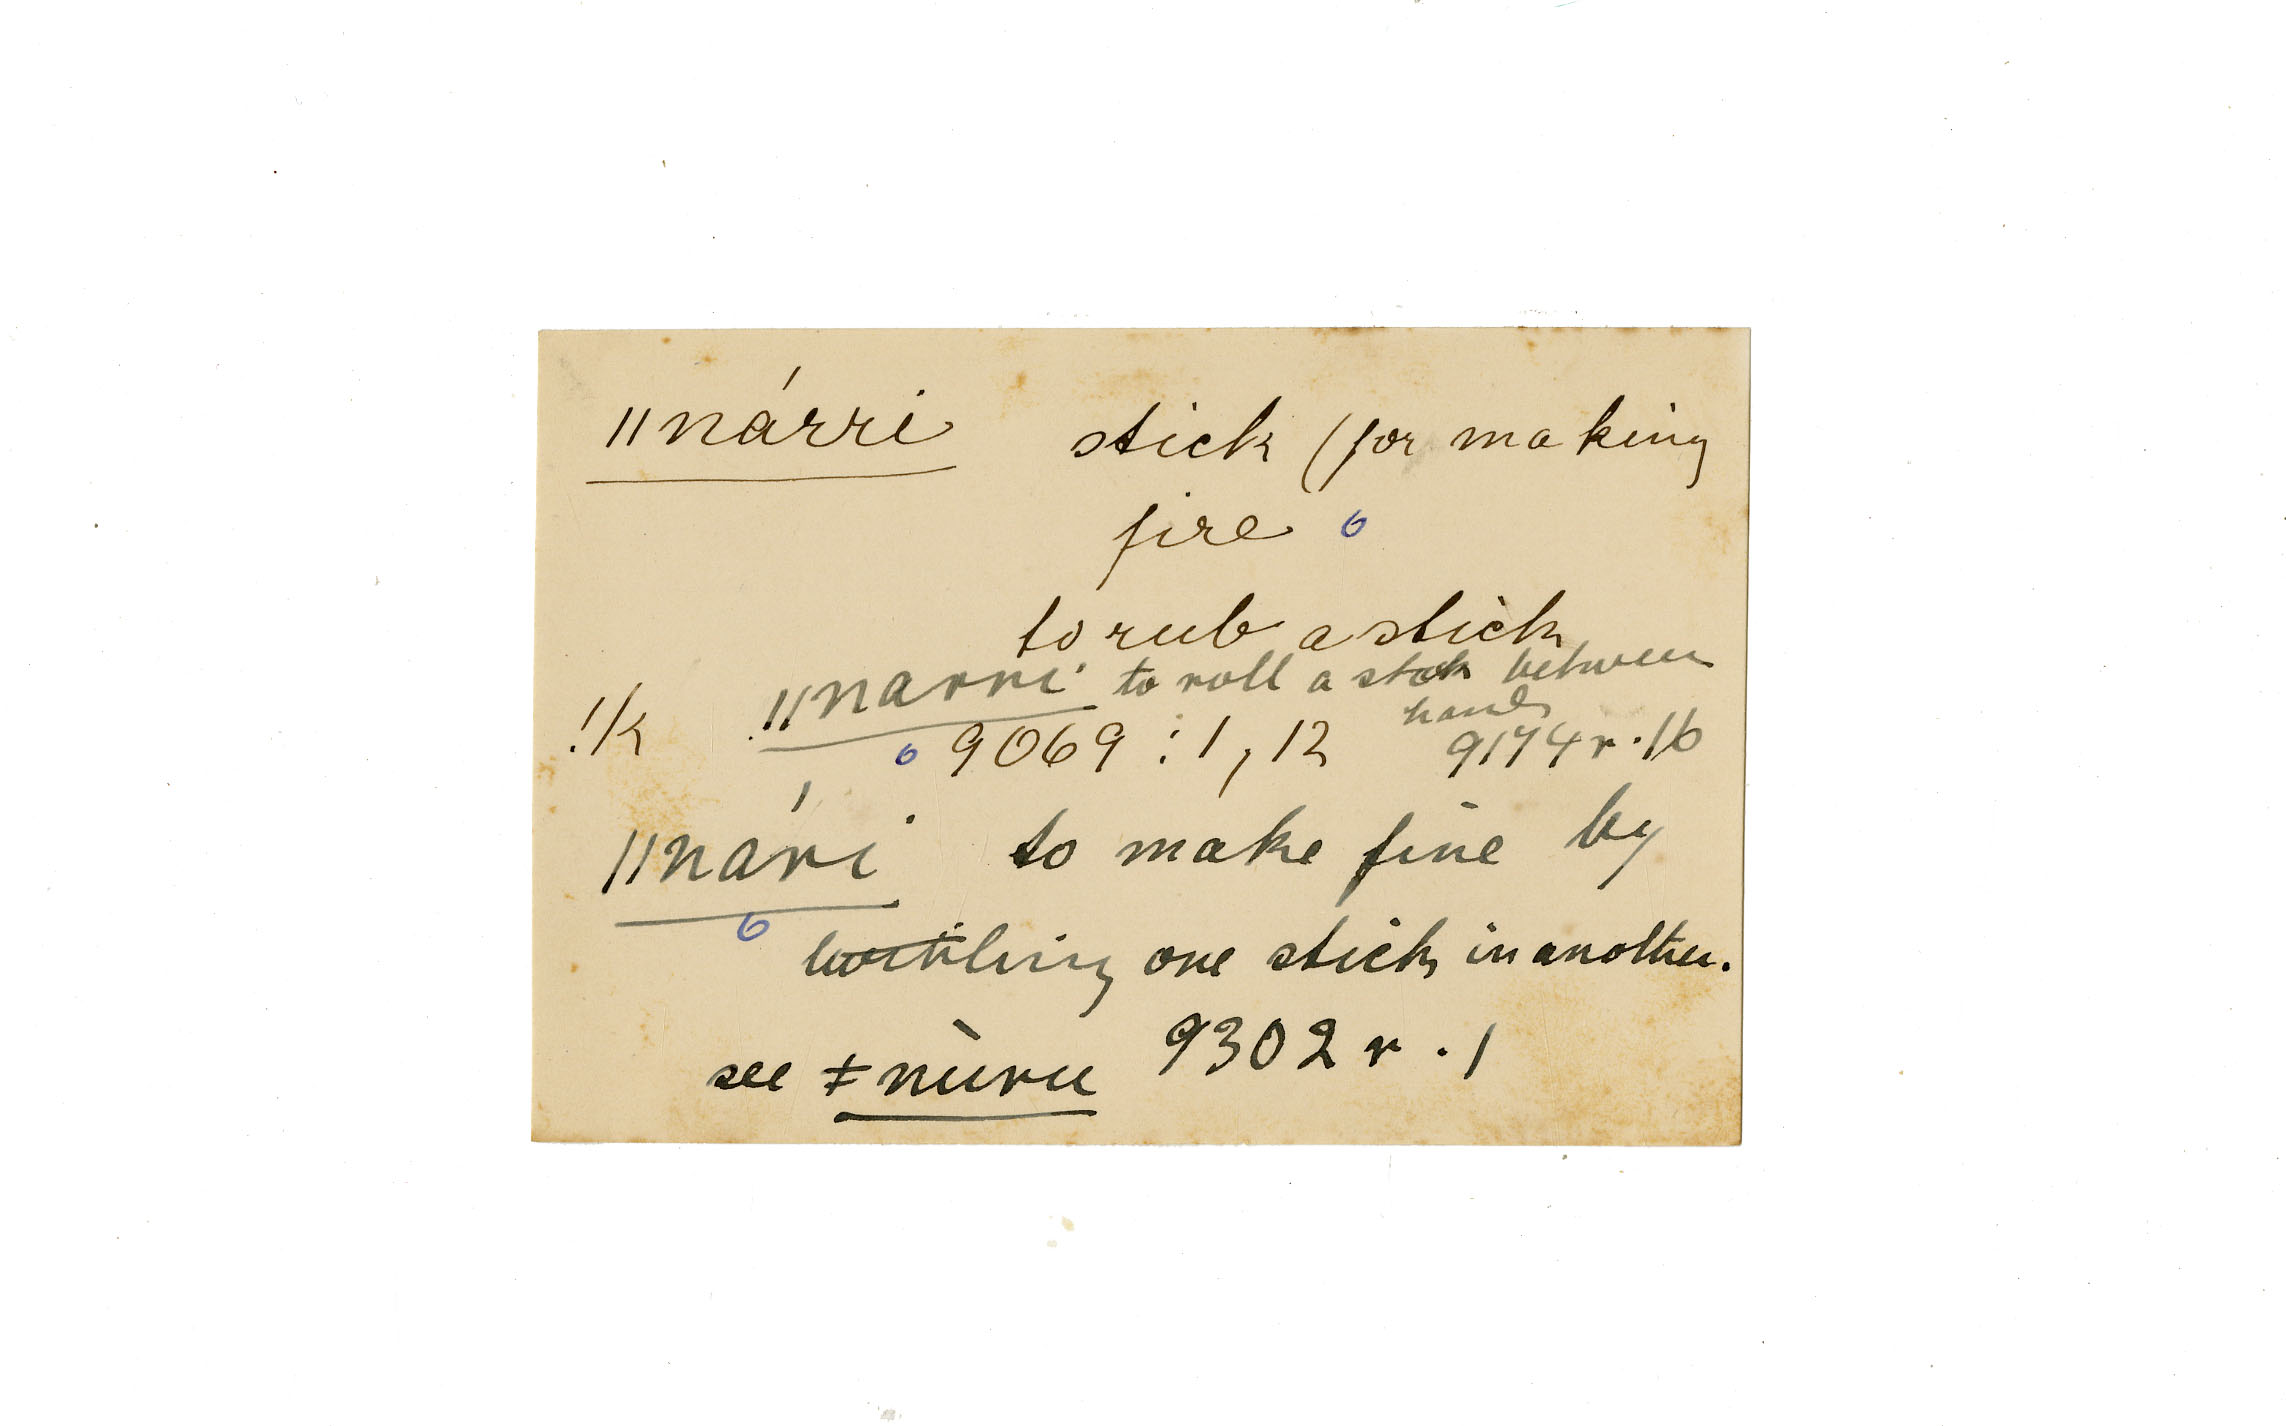 ǁnárri stick (for making
fire 6
to rub a stick
ǁnarri to roll a stick between
hands
!k 6 9069 : 1, 12 9174 r. 16
ǁnári to make fine by
6 one stick in another.
see ǂnùru 9302 r. 1